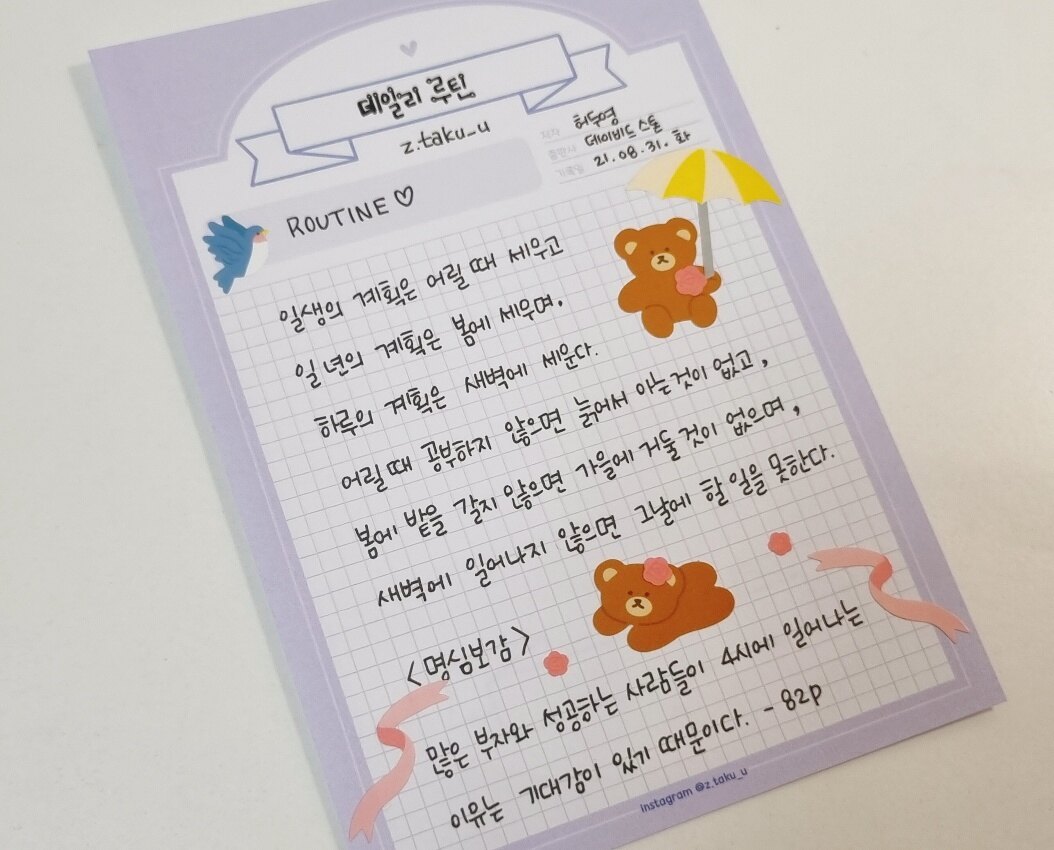 데일리 루틴
z.taku_u
저자 허두영
출판사 데이비드 스톤
기록일 21.08.31.화
ROUTINE♡
일생의 계획은 어릴 때 세우고
일 년의 계획은 봄에 세우며,
하루의 계획은 새벽에 세운다.
어릴 때 공부하지 않으면 늙어서 아는것이 없고,
봄에 밭을 갈지 않으면 가을에 거둘 것이 없으며,
새벽에 일어나지 않으면 그날에 할 일을 못한다.
<명심보감>
많은 부자와 성공하는 사람들이 4시에 일어나는
이유는 기대감이 있기 때문이다. - 82p
instagram @z.taku_u